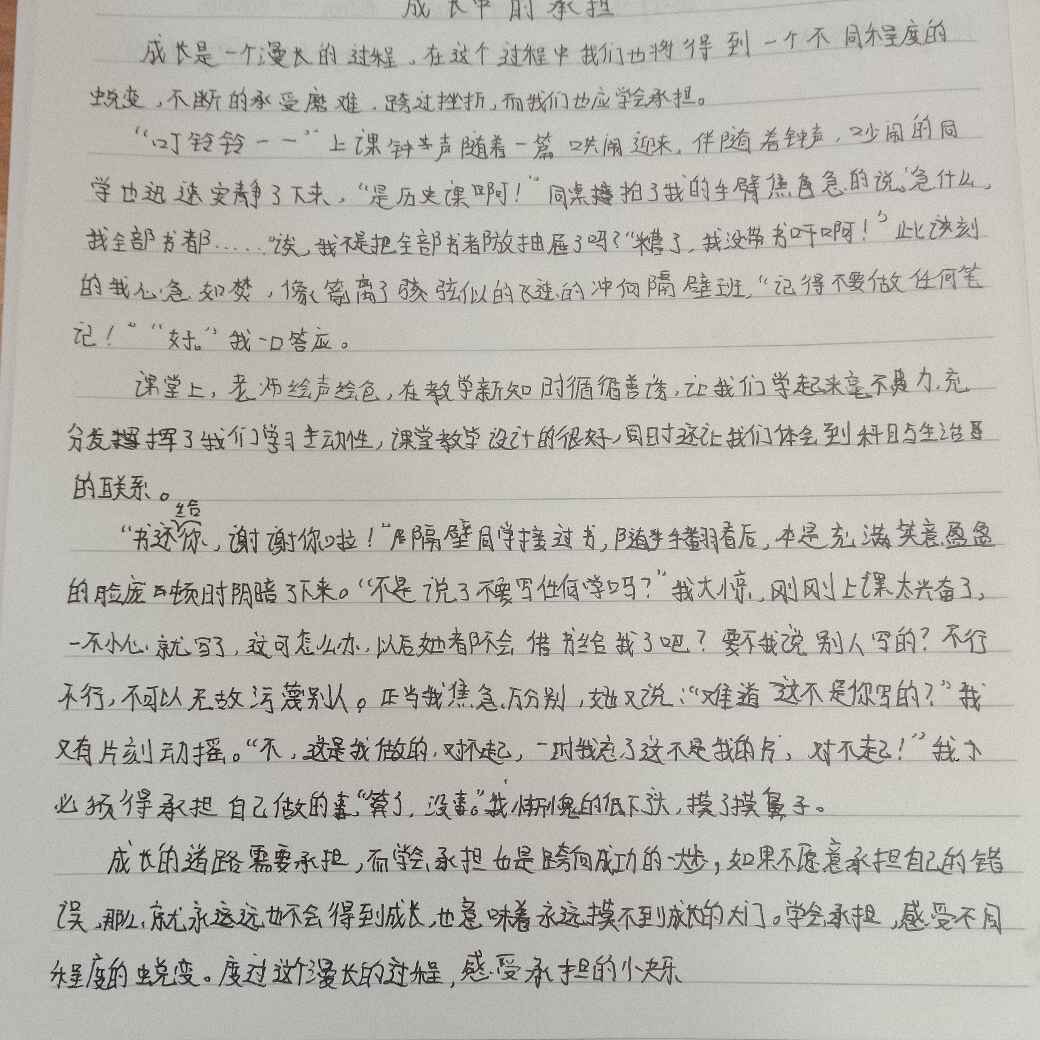 成长中的承担
成长是一个漫长的过程，在这个过程中我们也将得到一个不同程度的
蜕变，不断的承受磨难，跨过挫折，而我们也应学会承担。
“叮铃铃一一”上课钟声随着一篇哄闹迎来，伴随着钟声，吵闹的同
学也迅速安静了下来，“是历史课啊！”同桌拍了我的手臂焦急的说，“急什么，
我全部书都……”“诶，我不是把全部书都放抽屉了吗？”“糟了，我没带书吁啊！”此该刻
的我心急如焚，像箭离了弦似的飞速的冲向隔壁班，“记得不要做任何笔
记！”“好。”我一口答应。
课堂上，老师绘声绘色，在教学新知时循循善诱，让我们学起来毫不费力，充
分发挥了我们学习主动性，课堂教学设计的很好，同时还让我们体会到科目与生活
的联系。
“书还给你，谢谢你啦！”隔壁同学接过书，随手翻看后，本是充满笑意盈盈
的脸庞顿时阴暗了下来。“不是说了不要写任何字吗？”我大惊，刚刚上课太兴奋了，
一不小心就写了，这可怎么办，以后她都不会借书给我了吧？要不我说别人写的？不行
不行，不可以无故污蔑别人。正当我焦急万分别，她又说：“难道这不是你写的？”我
又有片刻动摇。“不，这是我做的，对不起，一时我忘了这不是我的书，对不起！”我
必须得承担自己做的事，“算了，没事。”我惭愧的低下头，摸了摸鼻子。
成长的道路需要承担，而学会承担也是跨向成功的一大步，如果不愿意承担自己的错
误，那么就永远远也不会得到成长，也意味着永远摸不到成长的大门。学会承担，感受不同
程度的蜕变。度过这个漫长的过程，感受承担的小快乐